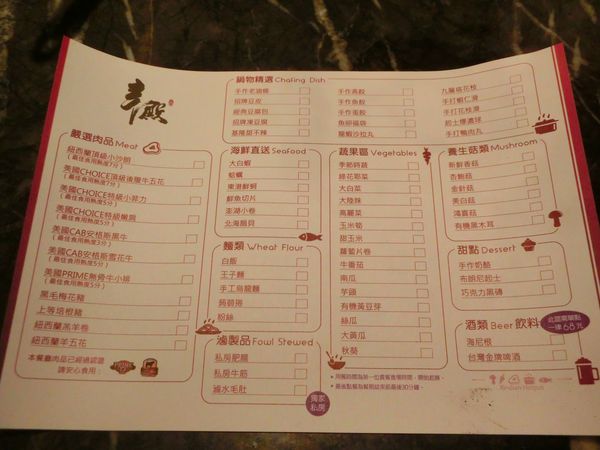 青殿
鍋物精選 Chafing Dish
手作老油條
招牌豆皮
經典豆腐包
招牌凍豆腐
基隆甜不辣
手作燕餃
手作魚餃
手作蛋餃
魚卵福袋
龍蝦沙拉丸
九層塔花枝
手打蝦仁滑
手打花枝滑
起士爆濃球
手打鴨肉丸
嚴選肉品 Meat
紐西蘭頂級小沙朗
(最佳食用熟度7分)
美國CHOICE頂級後腹牛五花
(最佳食用熟度7分)
美國CHOICE特級小菲力
(最佳食用熟度5分)
美國CHOICE特級嫩肩
(最佳食用熟度5分)
美國CAB安格斯黑牛
(最佳食用熟度3分)
美國CAB安格斯雪花牛
(最佳食用熟度5分)
美國PRIME無骨牛小排
(最佳食用熟度5分)
黑毛梅花豬
上等培根豬
紐西蘭羔羊卷
紐西蘭羊五花
本餐廳肉品已經過認證
請安心食用：
海鮮直送 Seafood
大白蝦
蛤蠣
東港鮮蚵
鮮魚切片
澎湖小卷
北海扇貝
麵類 Wheat Flour
白飯
王子麵
手工烏龍麵
蒟蒻捲
粉絲
滷製品 Fowl Stewed
私房肥腸
私房牛筋
滷水毛肚
獨家
私房
蔬果區 Vegetables
季節時蔬
綠花耶菜
大白菜
大陸妹
高麗菜
玉米筍
甜玉米
蘿蔔片卷
牛番茄
南瓜
芋頭
有機黃豆芽
絲瓜
大黃瓜
秋葵
養生菇類 Mushroom
新鮮香菇
杏鮑菇
金針菇
美白菇
鴻喜菇
有機黑木耳
甜點 Dessert
手作奶酪
布朗尼起士
巧克力黑磚
酒類 Beer 飲料
此區需單點
一律68元
海尼根
台灣金牌啤酒
• 用餐時間為第一位貴賓進場時間，開始起算。
• 最後點餐為餐期結束前最後30分鐘。